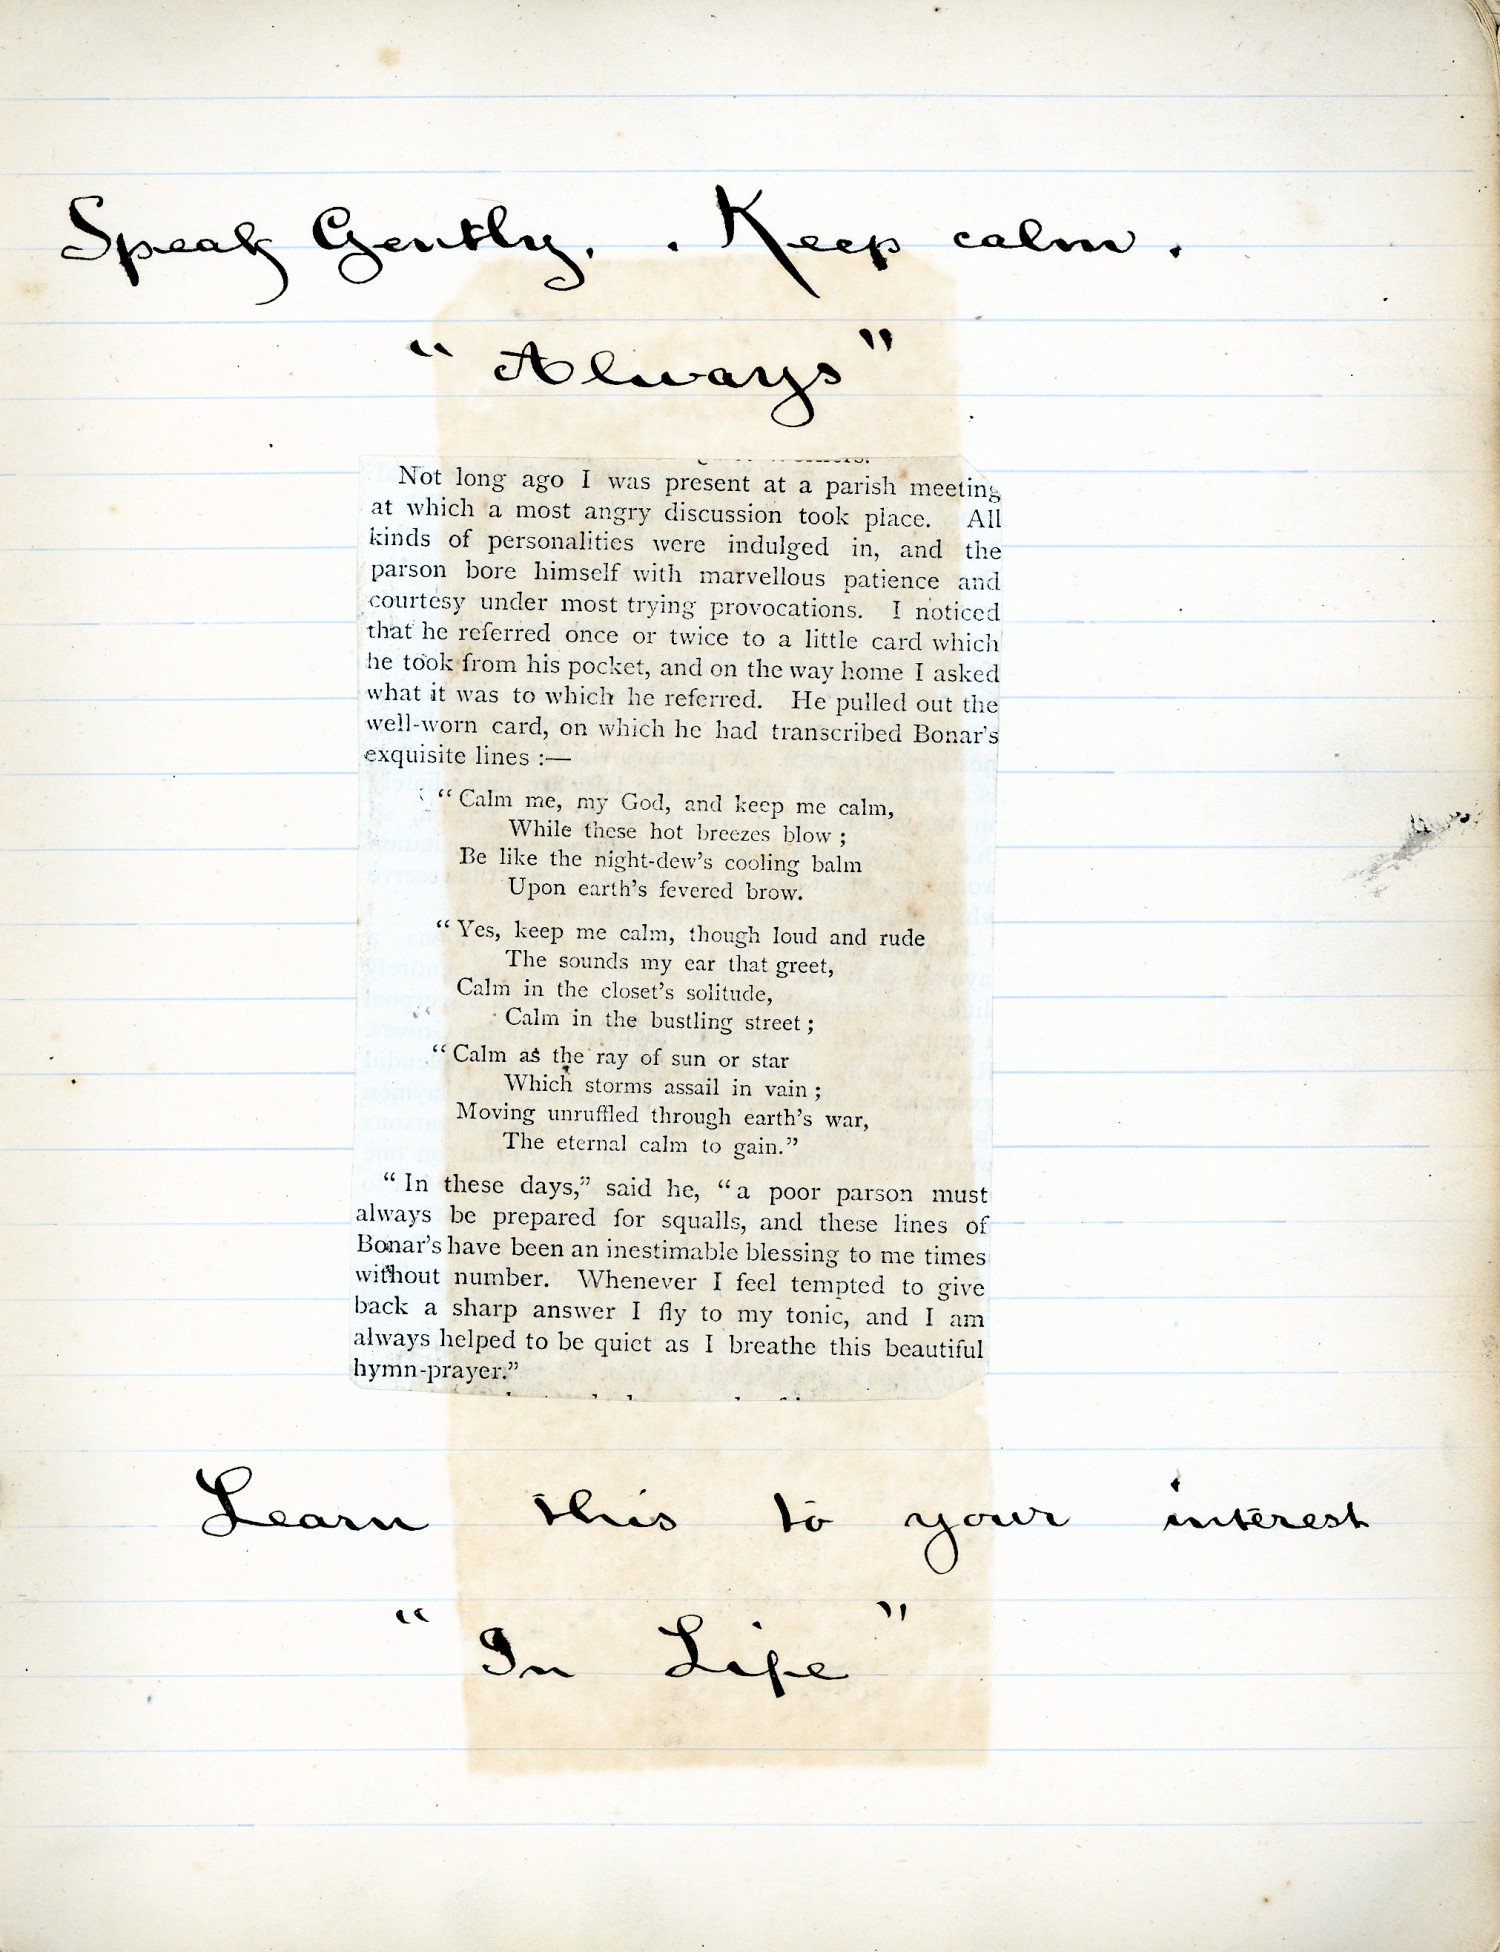 Speak Gently. . Keep calm .
“ Always ”
Not long ago I was present at a parish meeting
at which a most angry discussion took place. All
kinds of personalities were indulged in, and the
parson bore himself with marvellous patience and
courtesy under most trying provocations. I noticed
that he referred once or twice to a little card which
he took from his pocket, and on the way home I asked
what it was to which he referred. He pulled out the
well-worn card, on which he had transcribed Bonar’s
exquisite lines :—
“ Calm me, my God, and keep me calm,
While these hot breezes blow ;
Be like the night-dew’s cooling balm
Upon earth’s fevered brow.
“ Yes, keep me calm, though loud and rude
The sounds my ear that greet,
Calm in the closet’s solitude,
Calm in the bustling street ;
“ Calm as the ray of sun or star
Which storms assail in vain ;
Moving unruffled through earth’s war,
The eternal calm to gain.”
“ In these days,” said he, “ a poor parson must
always be prepared for squalls, and these lines of
Bonar’s have been an inestimable blessing to me times
without number. Whenever I feel tempted to give
back a sharp answer I fly to my tonic, and I am
always helped to be quiet as I breathe this beautiful
hymn-prayer.”
Learn this to your interest
“ In Life ”